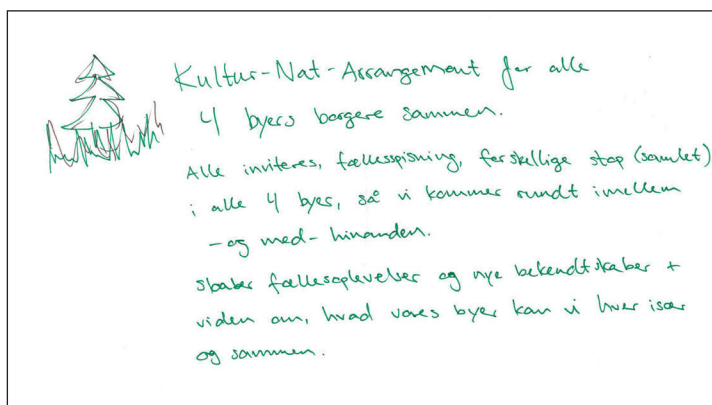 Kultur-Nat-Arrangement for alle
4 byers borgere sammen.
Alle inviteres, fællesspisning, forskellige stop (samlet)
i alle 4 byer, så vi kommer rundt imellem
-og med- hinanden.
skaber fællesoplevelser og nye bekendtskaber +
viden om, hvad vores byer kan vi hver især
og sammen.